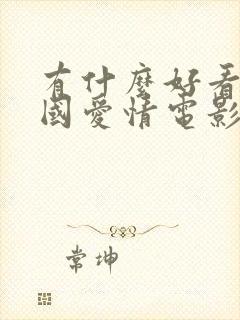 有什麼好看
國愛情電影
常坤